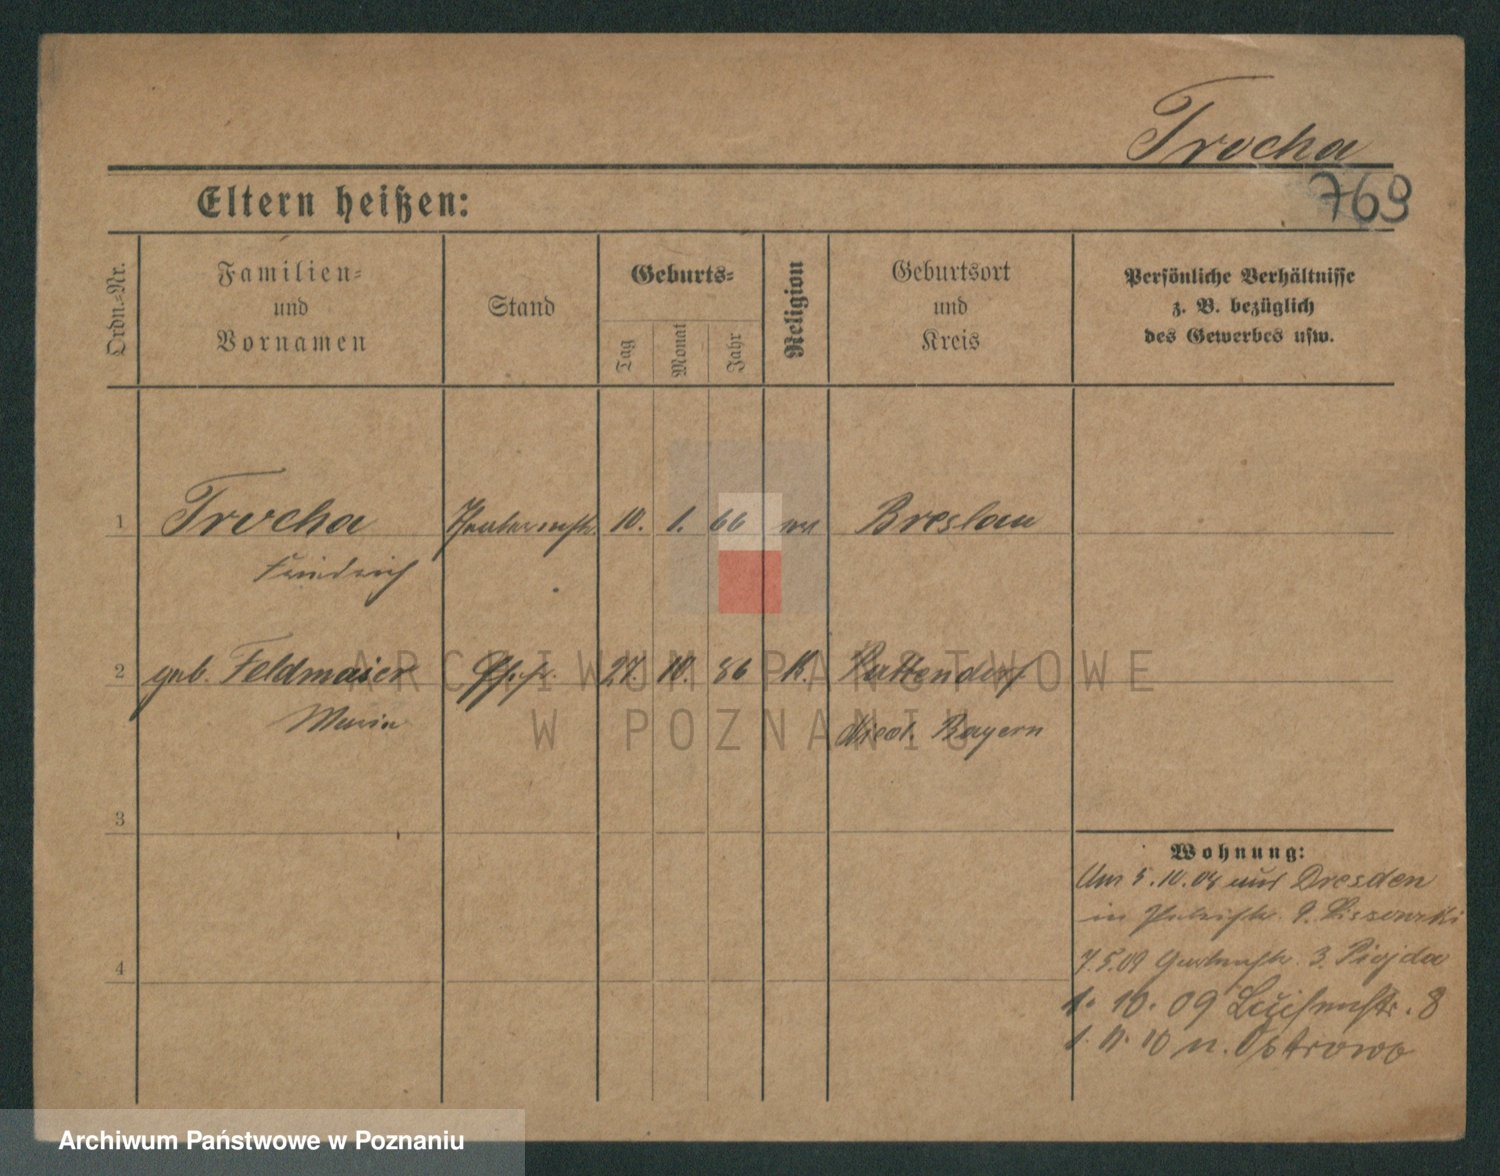 Trocha
769
Eltern heißen:
Ordn.-Nr.
Familien-
und
Vornamen
Stand
Geburts-
Tag
Monat
Jahr
Religion
Geburtsort
und
Kreis
Persönliche Verhältnisse
z. B. bezüglich
des Gewerbes usw.
1 Trocha 10. 1. 66 Breslau
Friedrich
2 geb. Feldmaier 27. 10. 86 K.
Maria Bayern
3
4
Wohnung:
Am 5.10.08 aus Dresden
in
7.5.09 Gartenstr. 3.
1. 10. 09 Luisenstr. 8
1. 11. 10 n. Ostrowo
ARCHIWUM PAŃSTWOWE
W POZNANIU
Archiwum Państwowe w Poznaniu